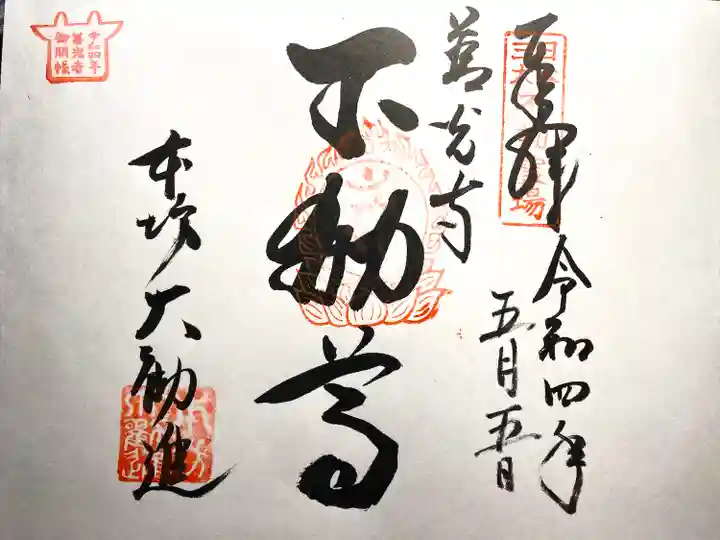 奉拝
令和四年
五月五日
善光寺
不動尊
本坊大勧進
令和四年
善光寺
御開帳